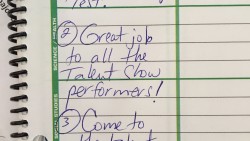 Test.
② Great job
to all the
Talent Show
performers!
③ Come to
SCIENCE / HEALTH